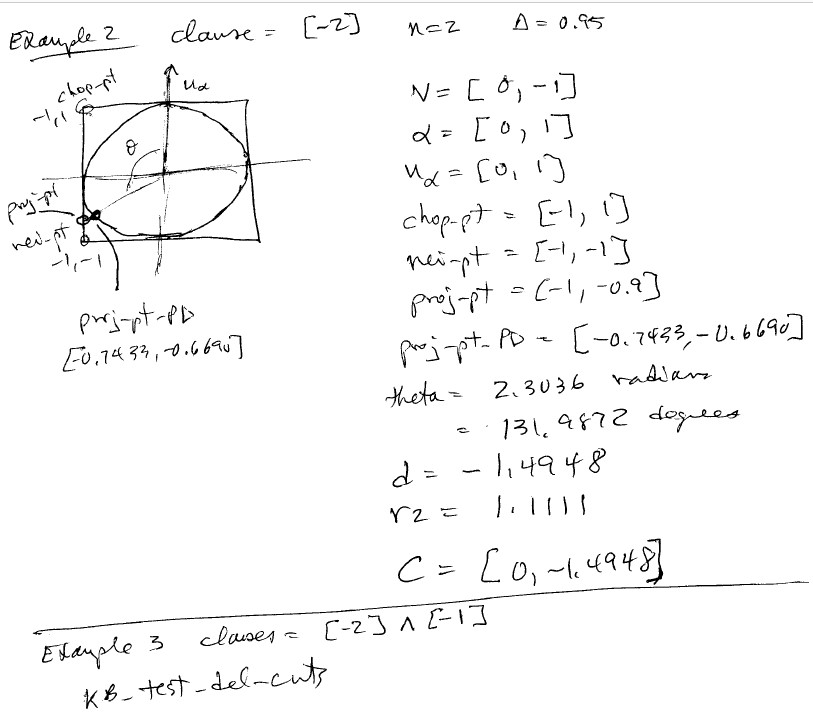 Example 2 clause = [-2] n=2 Δ = 0.95
chop-pt
-1,1
uα
θ
proj-pt
nei-pt
-1,-1
proj-pt-PD
[-0.7433,-0.6690]
N = [0, -1]
α = [0, 1]
uα = [0, 1]
chop-pt = [-1, 1]
nei-pt = [-1, -1]
proj-pt = [-1, -0.9]
proj-pt-PD = [-0.7433, -0.6690]
theta = 2.3036 radians
= 131.9872 degrees
d = -1.4948
r2 = 1.1111
C = [0, -1.4948]
Example 3 clauses = [-2] ∧ [-1]
KB_test_del_cuts